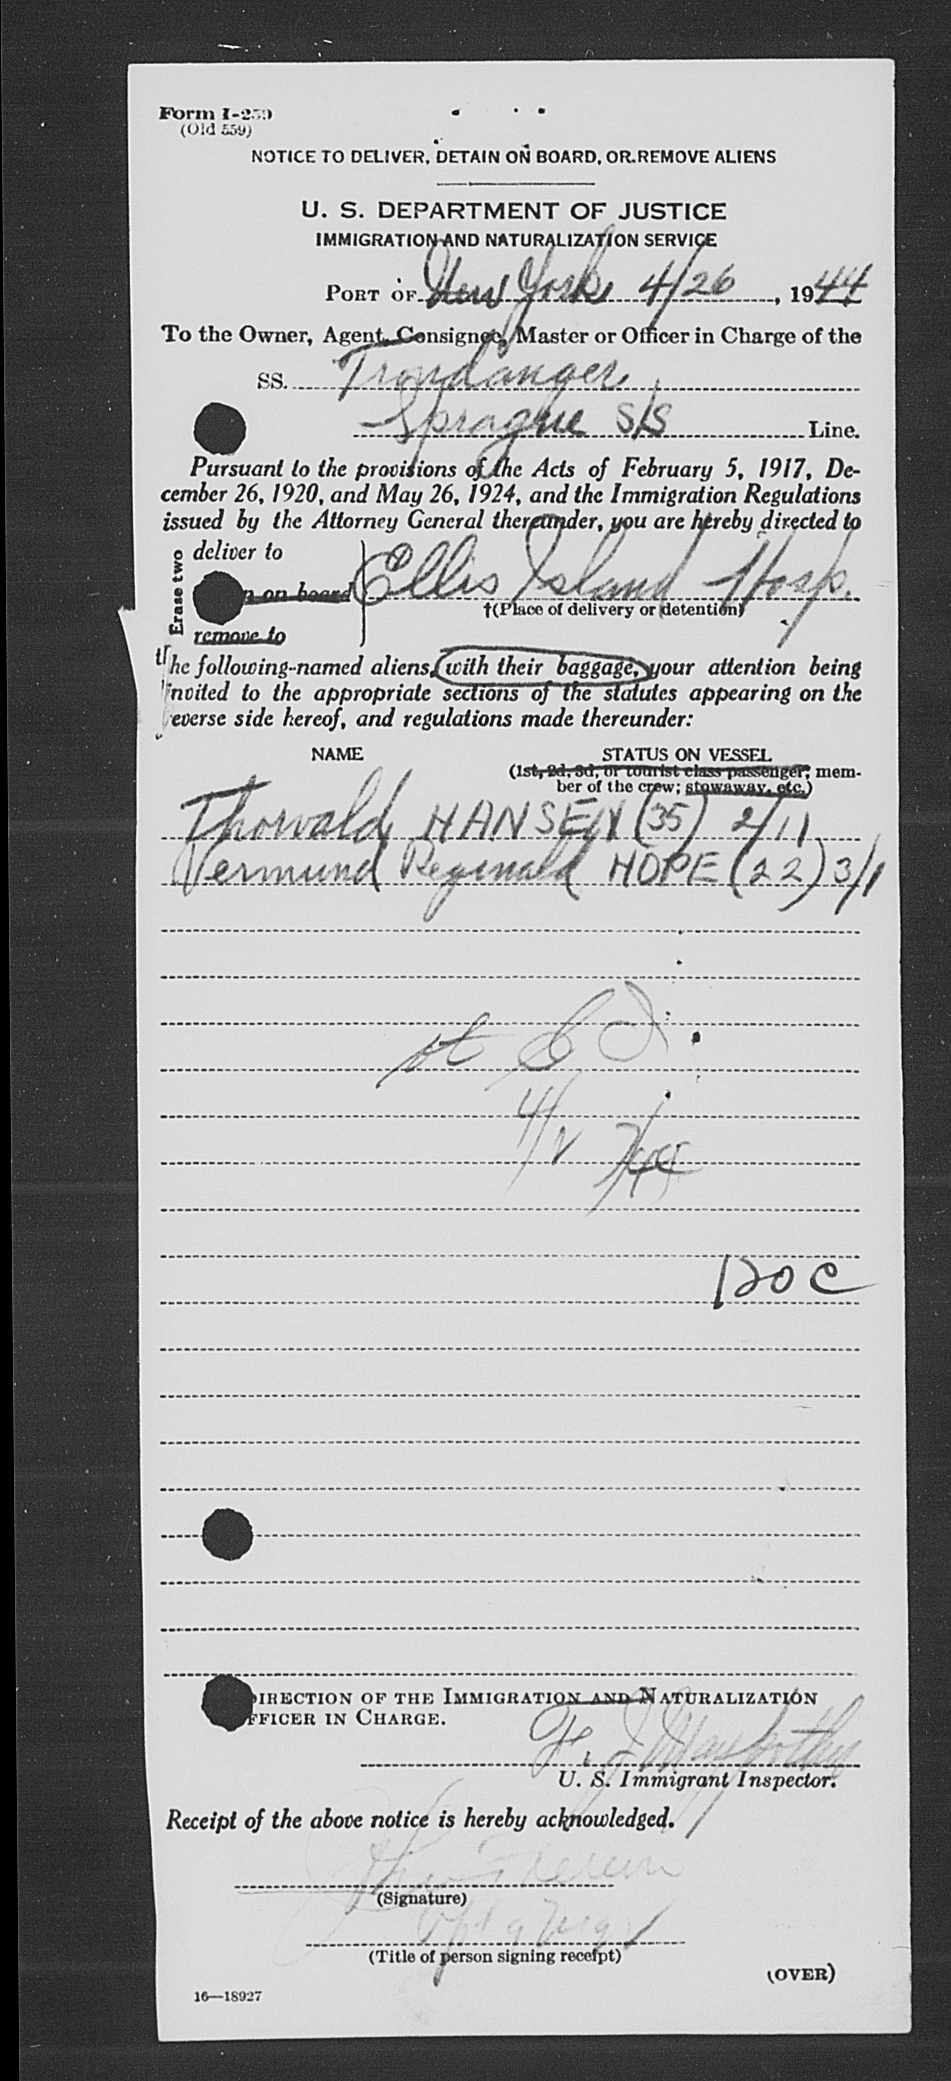 Form I-259
(Old 559)
NOTICE TO DELIVER, DETAIN ON BOARD, OR REMOVE ALIENS
U. S. DEPARTMENT OF JUSTICE
IMMIGRATION AND NATURALIZATION SERVICE
PORT OF New York 4/26, 1944
To the Owner, Agent, Consignee, Master or Officer in Charge of the
SS. Trondanger
Sprague S/S Line.
Pursuant to the provisions of the Acts of February 5, 1917, De-
cember 26, 1920, and May 26, 1924, and the Immigration Regulations
issued by the Attorney General thereunder, you are hereby directed to
Erase two
deliver to
n on board Ellis Island Hosp.
†(Place of delivery or detention)
remove to
the following-named aliens, with their baggage, your attention being
invited to the appropriate sections of the statutes appearing on the
reverse side hereof, and regulations made thereunder:
NAME STATUS ON VESSEL
(1st, 2d, 3d, or tourist class passenger; mem-
ber of the crew; stowaway, etc.)
Thorvald HANSEN (35) 2/11
Vermund Reginald HOPE (22) 3/1
120 C
DIRECTION OF THE IMMIGRATION AND NATURALIZATION
OFFICER IN CHARGE.
U. S. Immigrant Inspector.
Receipt of the above notice is hereby acknowledged.
(Signature)
(Title of person signing receipt)
(OVER)
16—18927